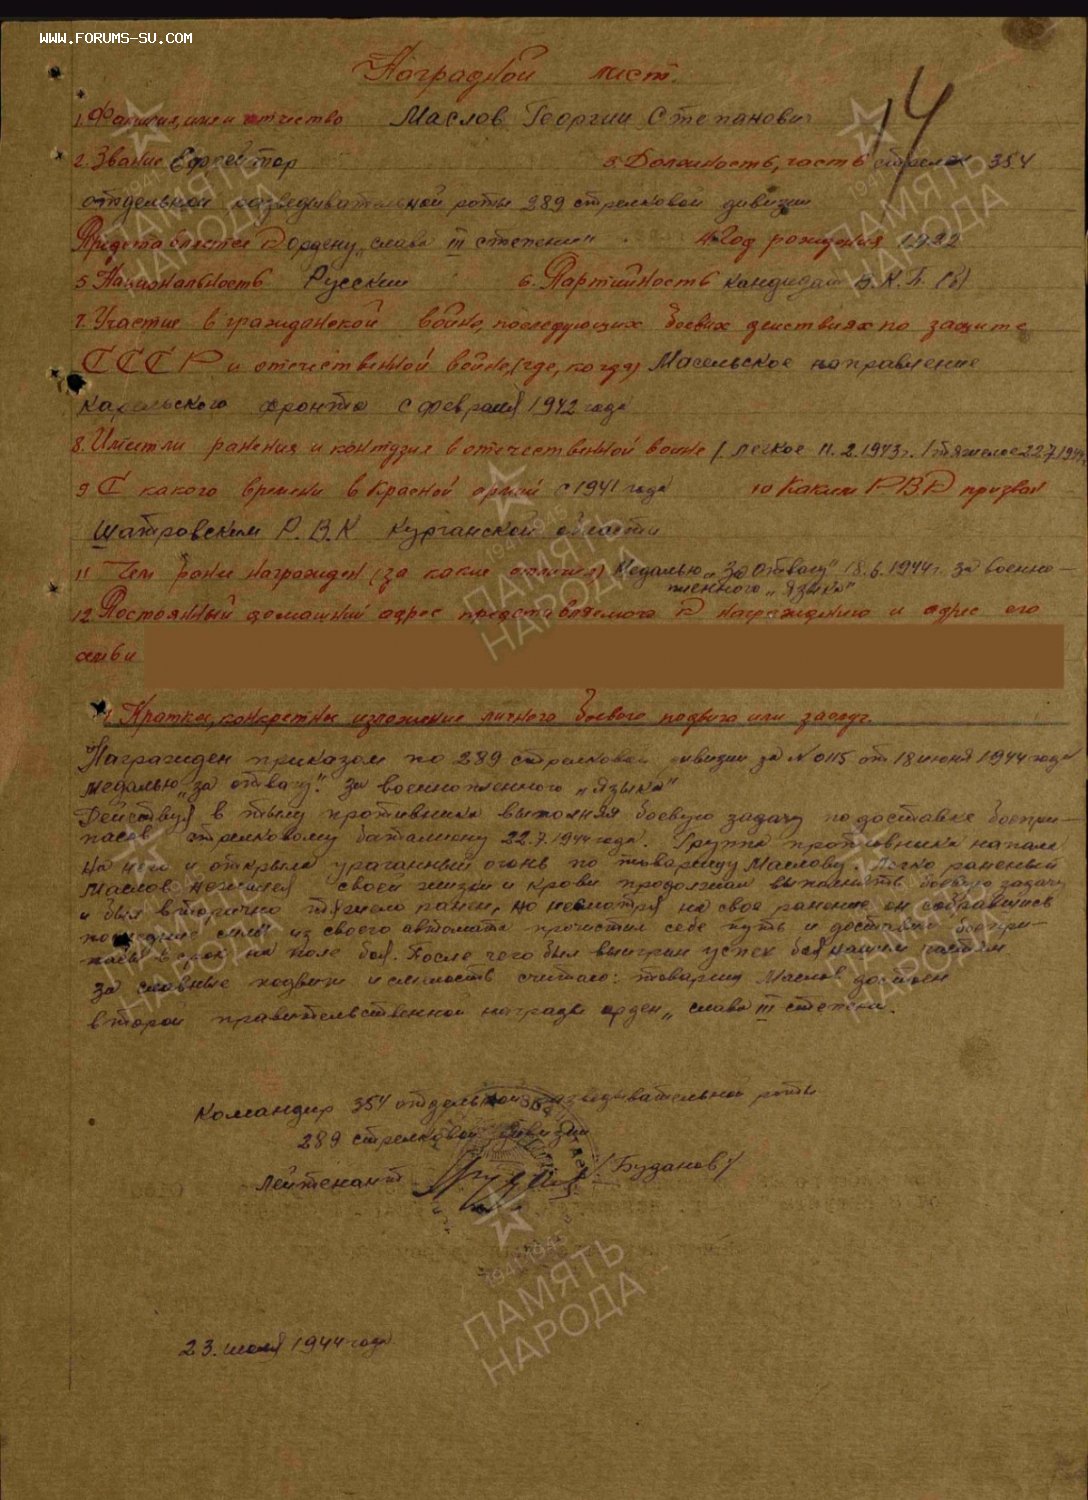 WWW.FORUMS-SU.COM
Наградной лист.
14
1. Фамилия, имя и отчество Маслов Георгий Степанович
2. Звание Ефрейтор 3. Должность, часть стрелок 354
отдельной разведывательной роты 289 стрелковой дивизии
Представляется к ордену „слава III степени" 4. Год рождения 1922
5. Национальность Русский 6. Партийность кандидат В.К.П.(б)
7. Участие в гражданской войне, последующих боевых действиях по защите
СССР и отечественной войне (где, когда) Масельское направление
карельского фронта с февраля 1942 года
8. Имеет ли ранения и контузия в отечественной войне 1 легкое 11.2.1943г. 1 тяжелое 22.7.1944
9 С какого времени в Красной армии с 1941 года 10 Каким РВК призван
Шатровским Р.В.К Курганской области
11 Чем ранее награжден (за какие отличия) Медалью „За отвагу" 18.6.1944г. за военно-
пленного „языка"
12. Постоянный домашний адрес представляемого к награждению и адрес его
семьи
1. Краткое, конкретное изложение личного боевого подвига или заслуг.
Награжден приказом по 289 стрелковой дивизии за № 0115 от 18 июня 1944 года
медалью „за отвагу". За военнопленного „языка"
Действуя в тылу противника выполняя боевую задачу по доставке боепри-
пасов стрелковому батальону 22.7.1944 года. Группа противника напала
на него и открыла ураганный огонь по товарищу Маслову. Легко раненый
Маслов не жалея своей жизни и крови продолжал выполнять боевую задачу
и был вторично тяжело ранен, но несмотря на свое ранение он собравшись
последние силы из своего автомата прочистил себе путь и доставил боепри-
пасы в срок на поле боя. После чего был выигран успех боя нашим частям
За славные подвиги и смелость считаю: товарищ Маслов достоен
второй правительственной награды орден „слава III степени.
Командир 354 отдельной разведывательной роты
289 стрелковой дивизии
лейтенант (Буданов)
23. июля 1944 года
ПАМЯТЬ
НАРОДА
1941-1945
ПАМЯТЬ
НАРОДА
1941-1945
ПАМЯТЬ
НАРОДА
1941-1945
ПАМЯТЬ
НАРОДА